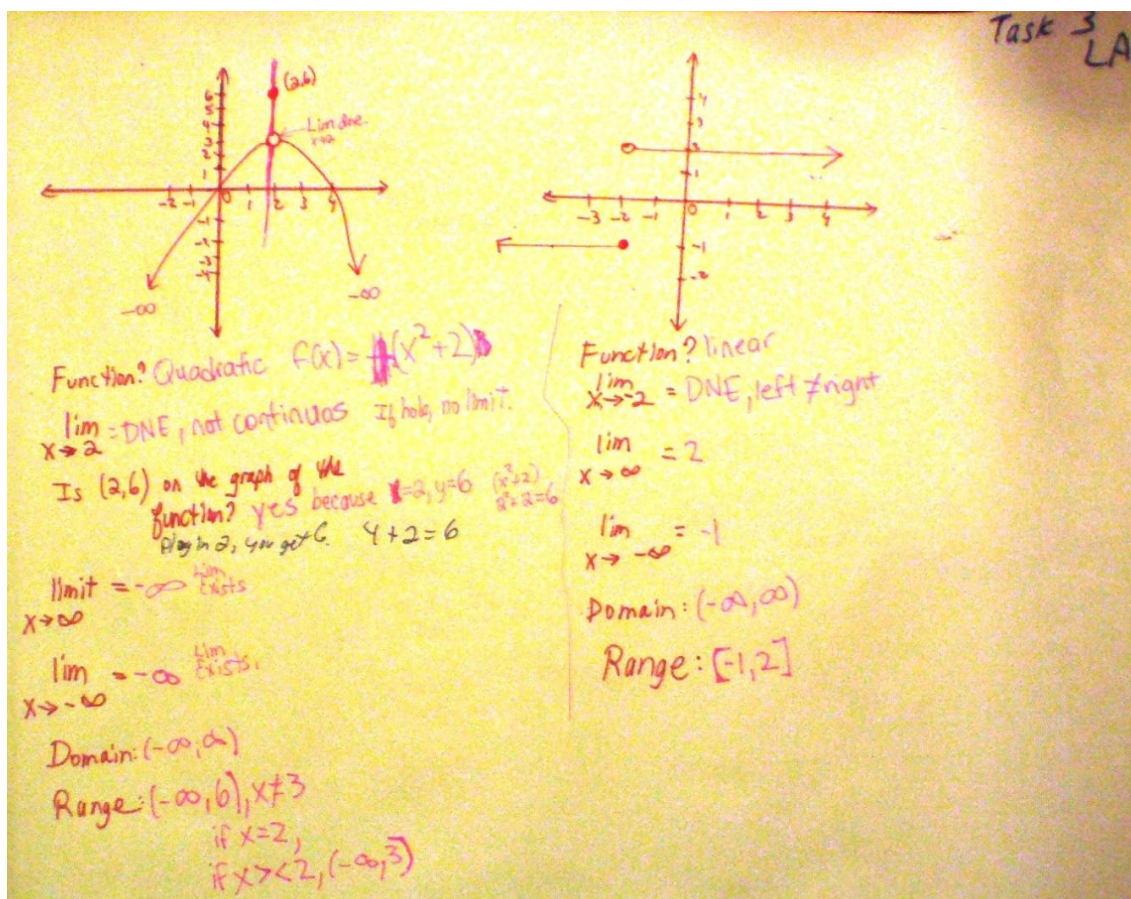 Task 3
LA
(2,6)
Lim dne
x→2
6
5
4
3
2
1
-2 -1 0 1 2 3 4
-1
-2
-3
-4
-∞ -∞
4
3
2
1
-3 -2 -1 0 1 2 3 4
-1
-2
Function? Quadratic f(x) = (x² + 2)
lim = DNE, not continuos If hole, no limit.
x → 2
Is (2,6) on the graph of the
function? yes because x=2, y=6 (x²+2)
2²+2=6
Plug in 2, you get 6. 4+2=6
limit = -∞ Lim
Exists
x→∞
lim = -∞ Lim
Exists.
x→ -∞
Domain: (-∞, ∞)
Range: (-∞, 6), x≠3
if x=2,
if x><2, (-∞, 3)
Function? linear
lim = DNE, left ≠ right
x→-2
lim = 2
x → ∞
lim = -1
x → -∞
Domain: (-∞, ∞)
Range: [-1, 2]